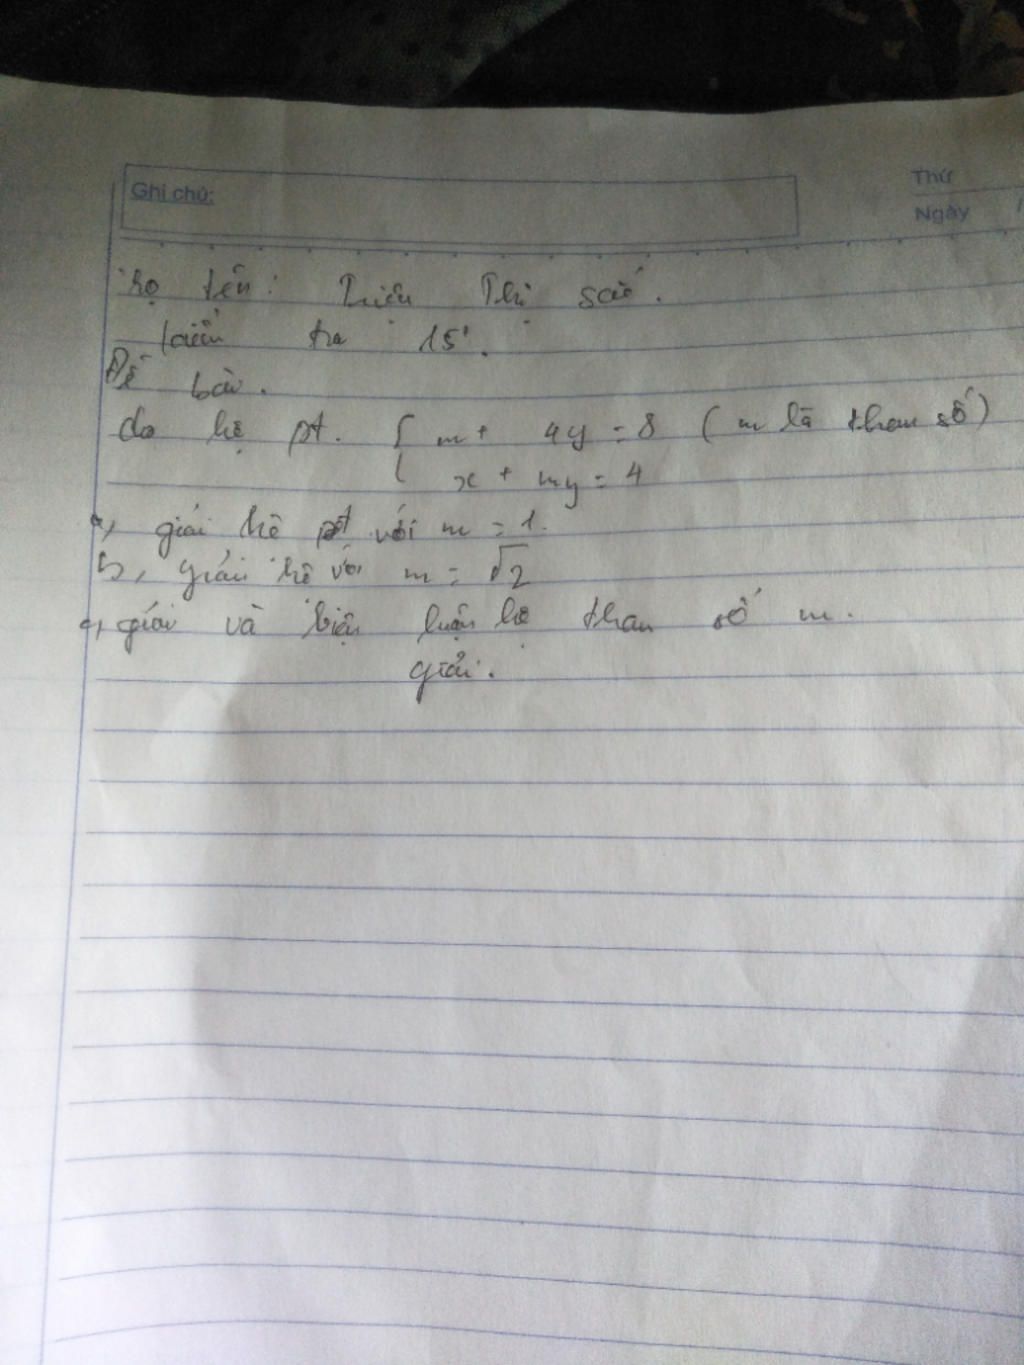 Ghi chú:
Thứ
Ngày /
họ tên: Triệu Thị
kiểm tra 15'.
Đề bài.
cho hệ pt. { m + 4y = 8 ( m là tham số )
x + my = 4
a, giải hệ pt với m = 1.
b, giải hệ với m = √2
c, giải và biện luận hệ tham số m.
giải.